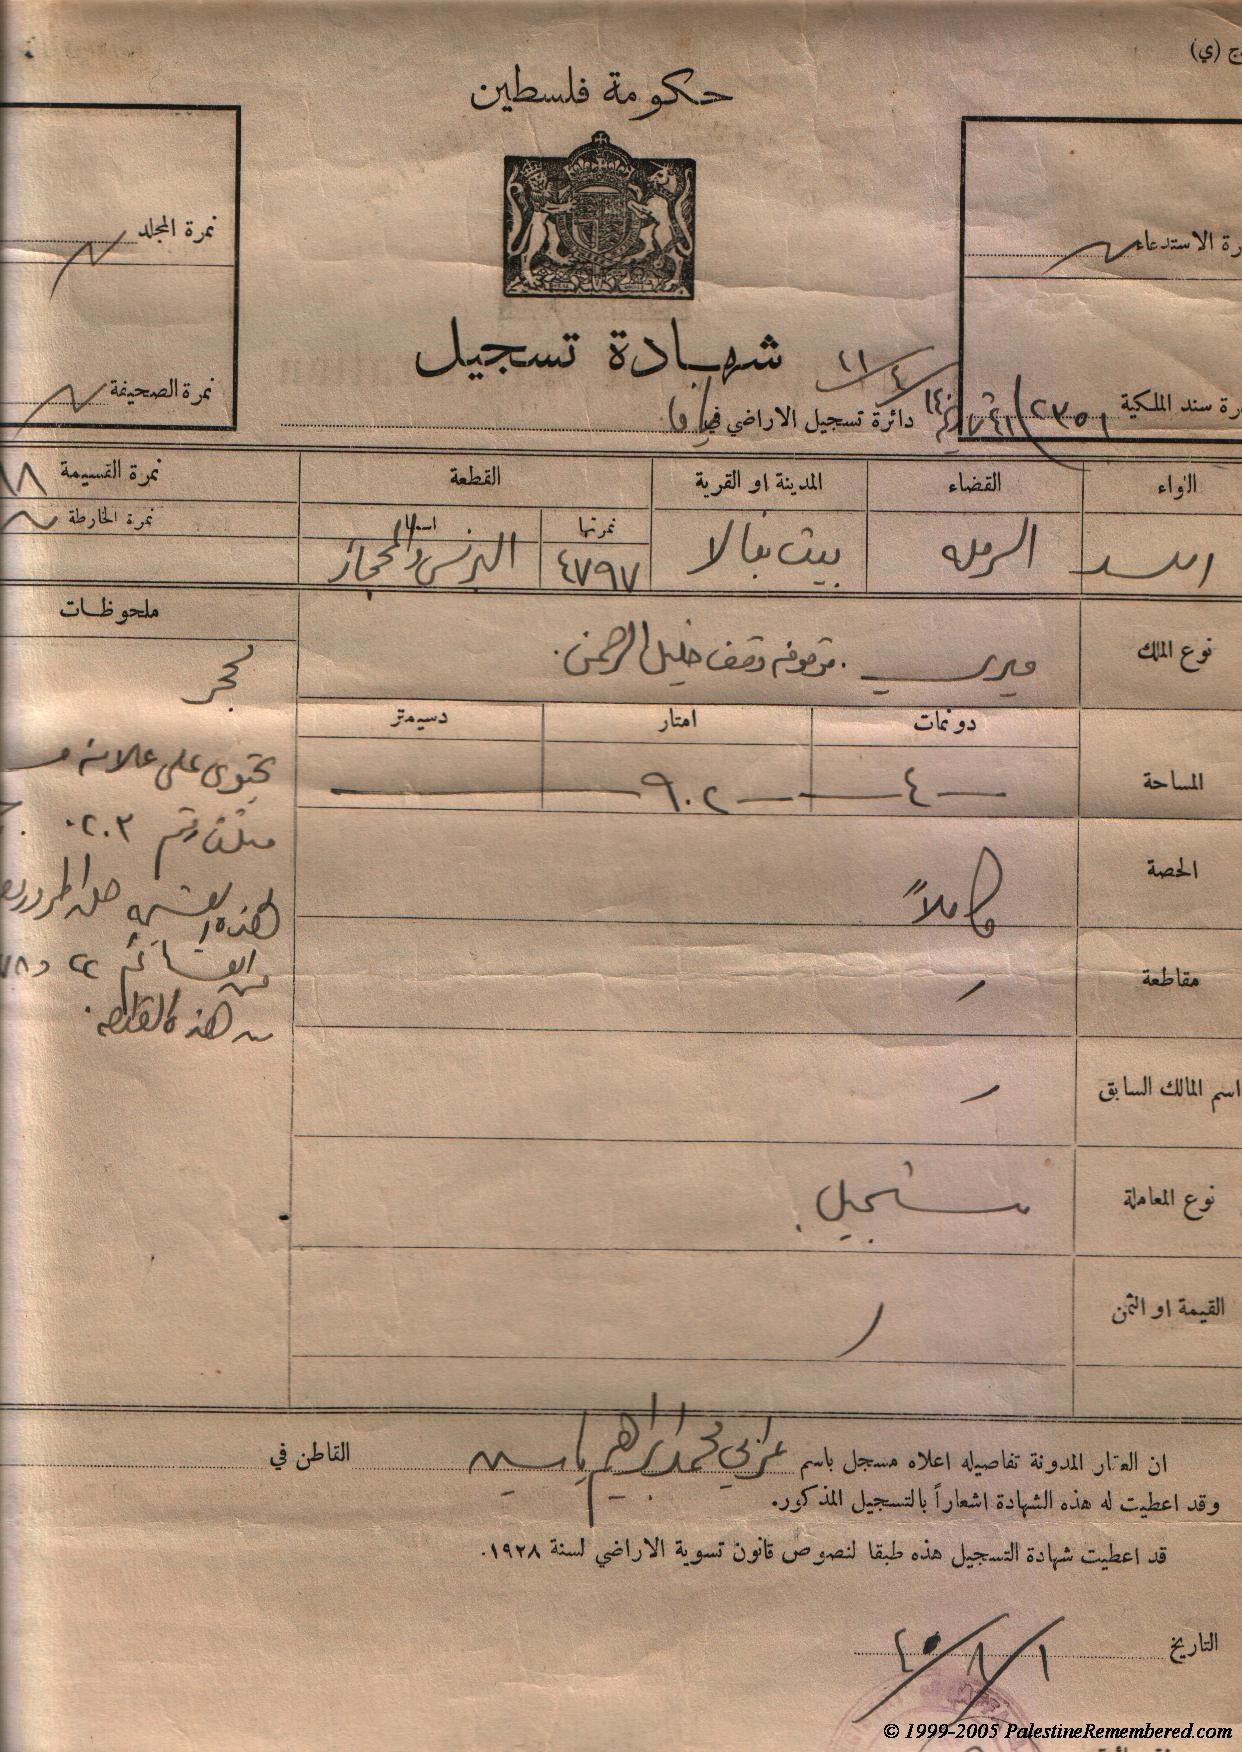 ج (ي)
حكومة فلسطين
نمرة المجلد
رة الاستدعاء
شهادة تسجيل
نمرة الصحيفة
رة سند الملكية
دائرة تسجيل الاراضي في
الواء
القضاء
المدينة او القرية
القطعة
نمرة القسيمة
نمرتها
اسمها
نمرة الخارطة
اللد
الرمله
بيت نبالا
٤٧٩٧
البرنس والمحجاز
١٨
نوع الملك
ميري موقوفه وقف خليل الرحمن.
ملحوظات
حجر
يحتوي على علامة
مثلث رقم ٢٠٣.
لهذه القسيمة حق المرور
من القسائم ٢٢ و
من هذه القطعه.
دونمات
امتار
دسيمتر
المساحة
٤
٩٠٢
الحصة
كاملاً
مقاطعة
اسم المالك السابق
نوع المعاملة
تسجيل
القيمة او الثمن
ان العقار المدونة تفاصيله اعلاه مسجل باسم محمد ابراهيم ياسين القاطن في
وقد اعطيت له هذه الشهادة اشعاراً بالتسجيل المذكور.
قد اعطيت شهادة التسجيل هذه طبقا لنصوص قانون تسوية الاراضي لسنة ١٩٢٨.
التاريخ
© 1999-2005 PalestineRemembered.com